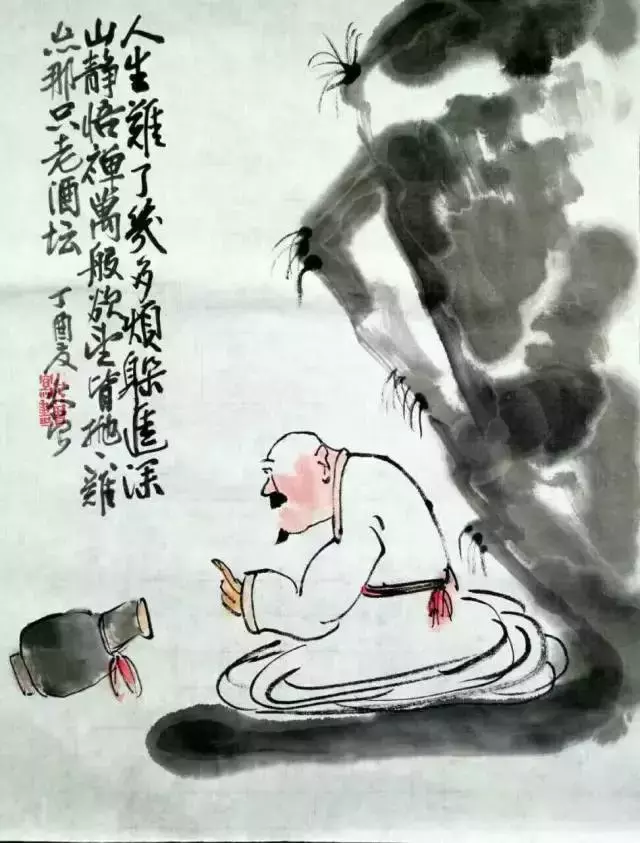 人生難了幾多煩躲進深
山静悟禪萬般欲望皆抛、難
忘那只老酒坛
丁酉夏